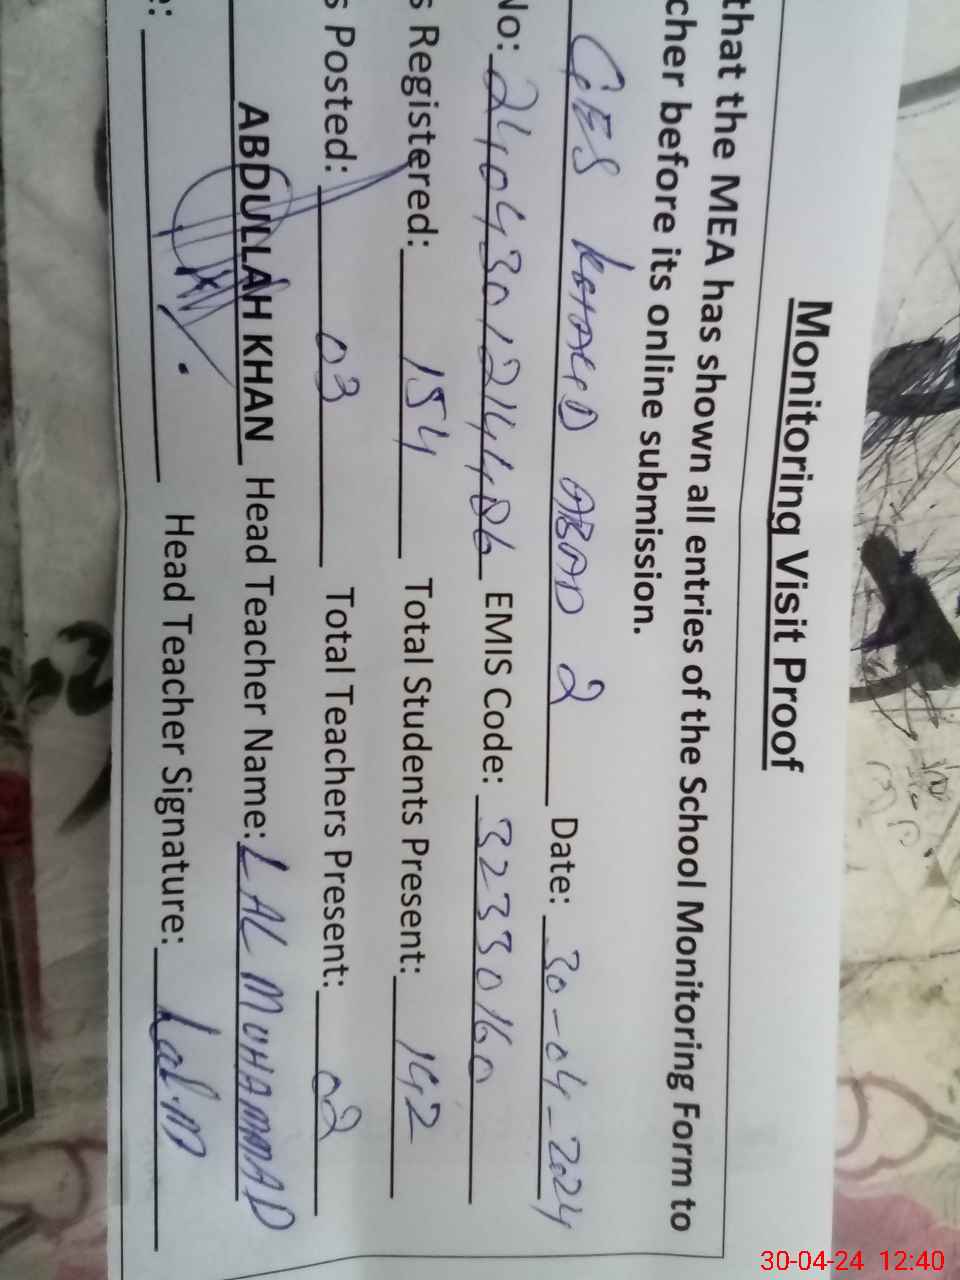 Monitoring Visit Proof
that the MEA has shown all entries of the School Monitoring Form to
cher before its online submission.
GES KHALID ABAD 2 Date: 30-04-2024
No: 2404301214486 EMIS Code: 32330160
s Registered: 154 Total Students Present: 142
s Posted: 03 Total Teachers Present: 02
ABDULLAH KHAN Head Teacher Name: LAL MUHAMMAD
e: Head Teacher Signature: Lal.M
30-04-24 12:40